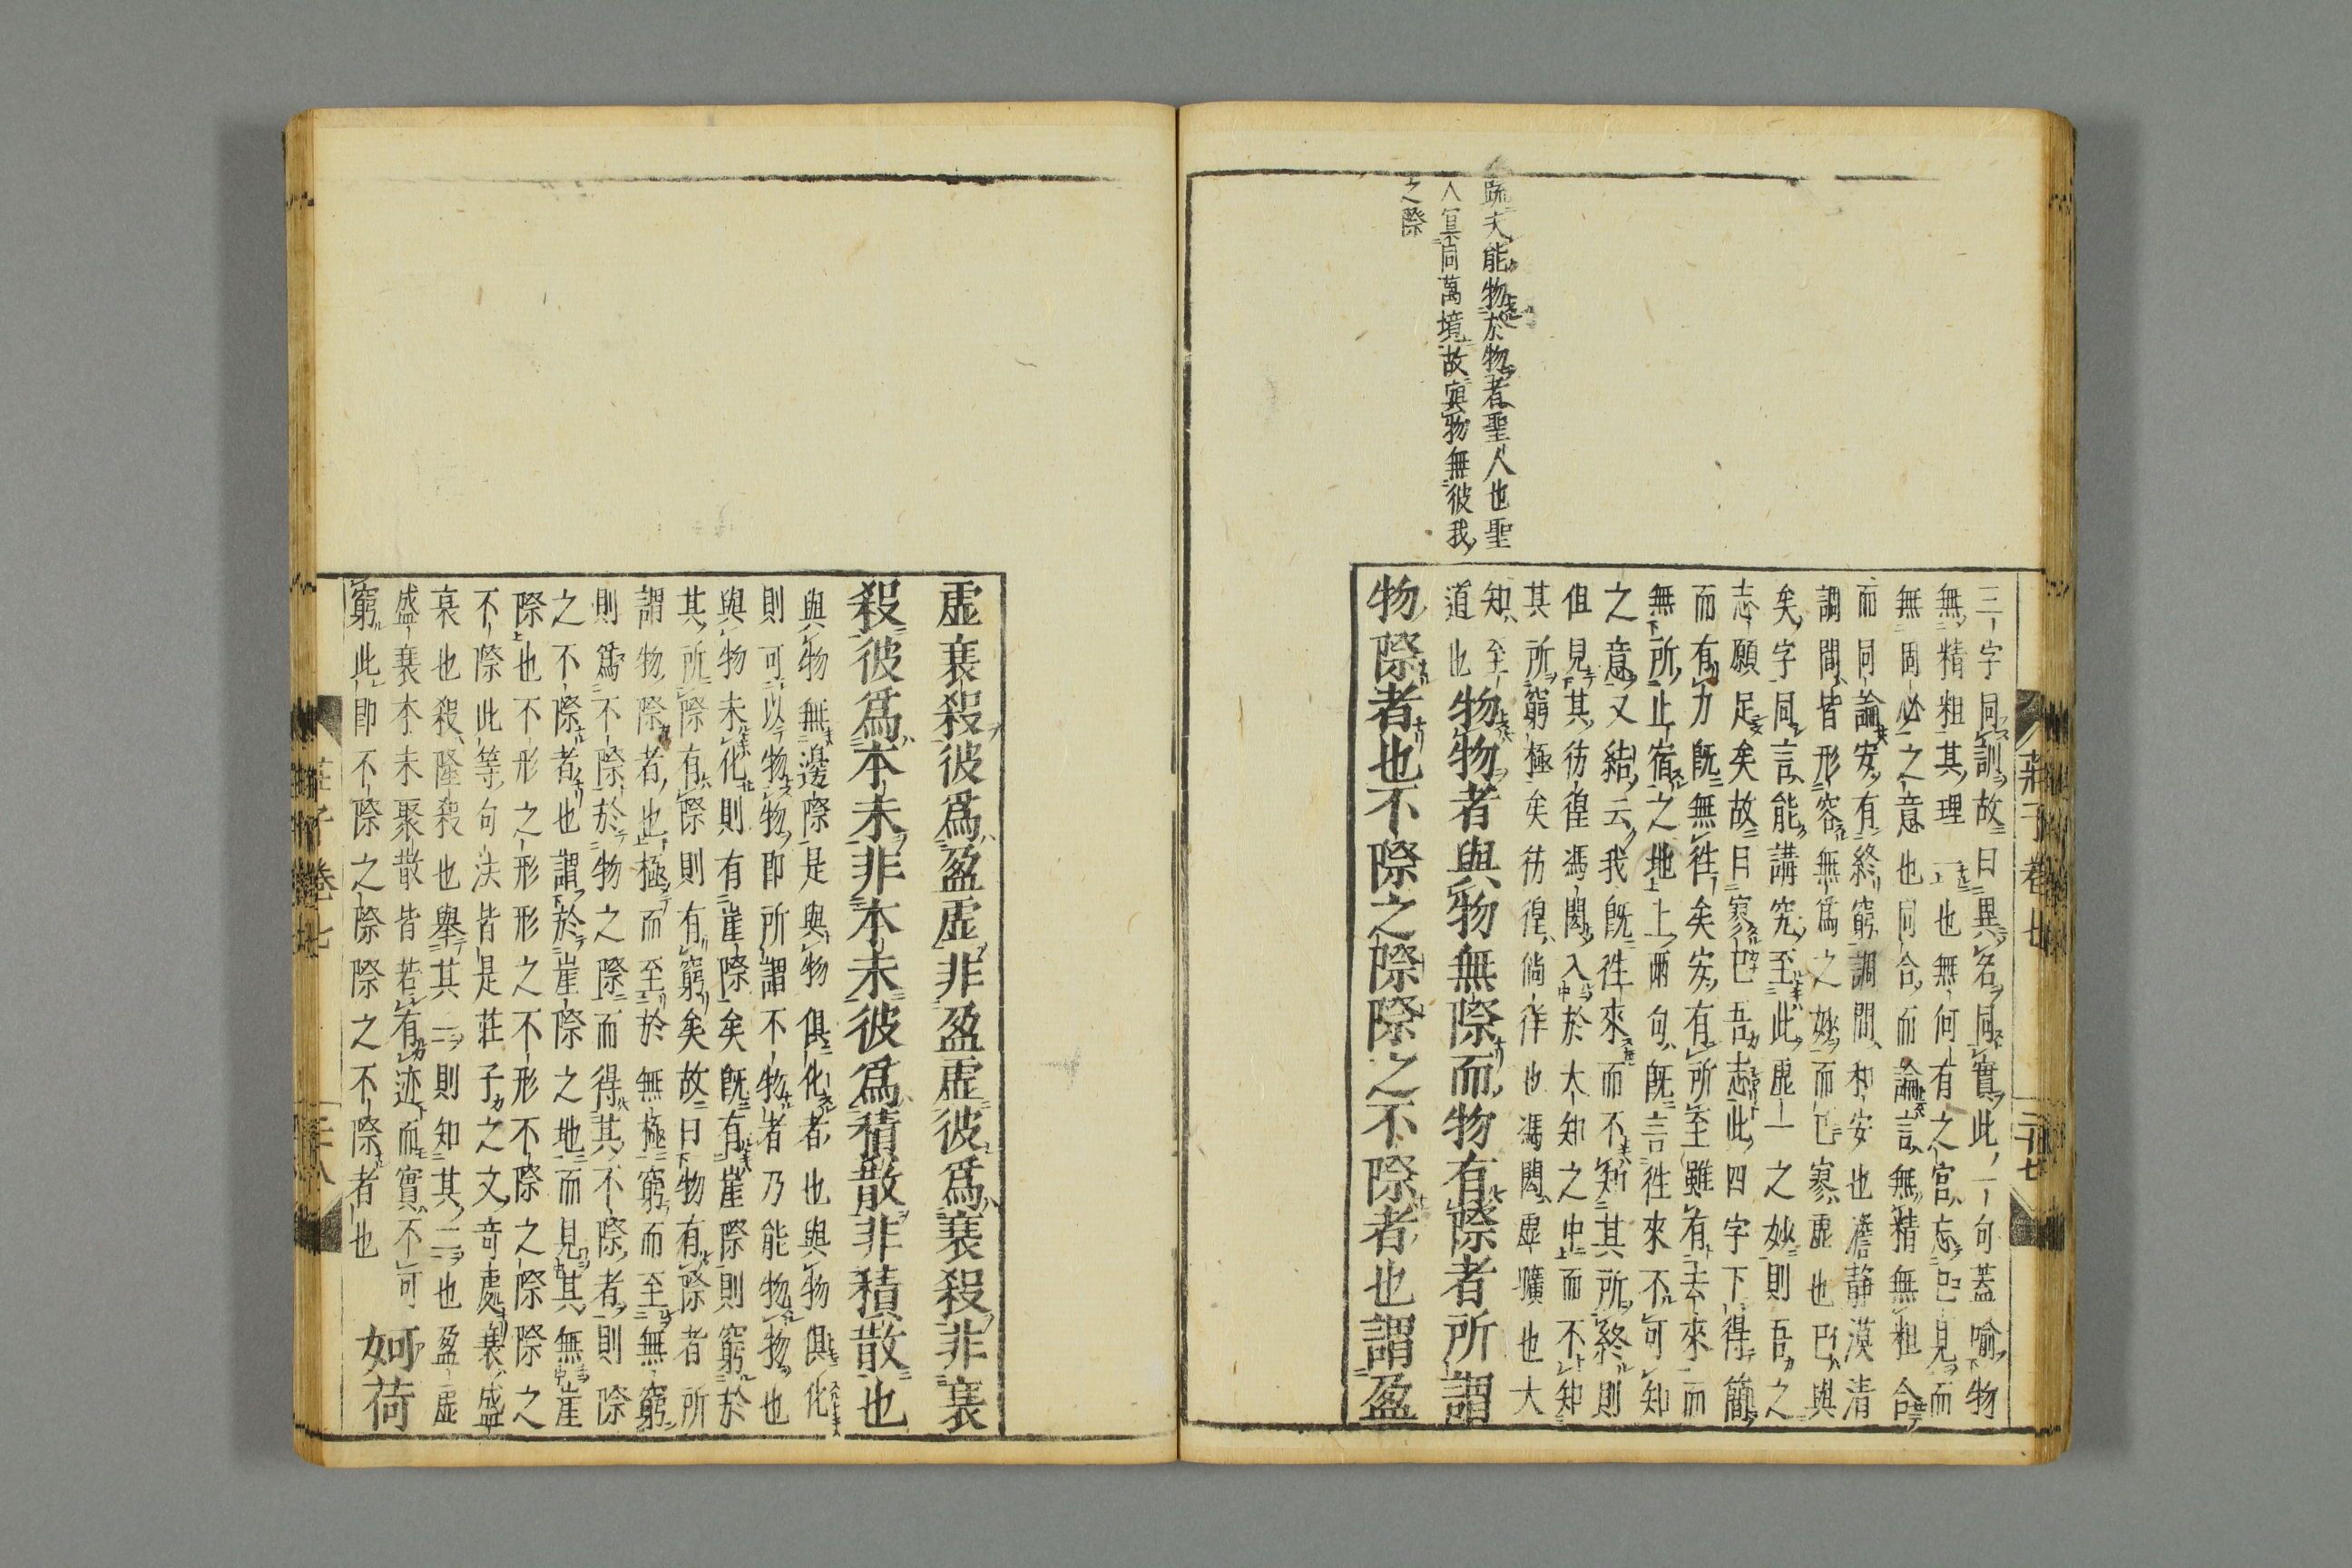 疏夫能物於物者聖人也聖
人冥同萬境故與物無彼我
之際
三字同訓故曰異名同實此一句蓋喻物
無精粗其理一也無何有之宮忘已見而
無固必之意也同合而論言無精無粗合
而同論安有終窮調間和安也澹靜漠清
調間皆形容無爲之妙而已寥虛也已與
矣字同言能講究至此虛一之妙則吾之
志願足矣故曰寥已吾志此四字下得簡
而有力旣無徃矣安有所至雖有去來而
無所止宿之地上兩句旣言徃來不可知
之意又結云我旣徃來而不知其所終則
但見其彷徨馮閎入於大知之中而不知
其所窮極矣彷徨倘徉也馮閎虛曠也大
知至
道也
物物者與物無際而物有際者所謂
物際者也不際之際際之不際者也謂盈
虛衰殺彼爲盈虛非盈虛彼爲衰殺非衰
殺彼爲本末非本末彼爲積散非積散也
與物無邊際是與物俱化者也與物俱化
則可以物物卽所謂不物者乃能物物也
與物未化則有崖際矣旣有崖際則窮於
其所際有際則有窮矣故曰物有際者所
謂物際者也極而至於無極窮而至無窮
則爲不際於物之際而得其不際者則際
之不際者也謂於崖際之地而見其無崖
際也不形之形形之不形不際之際際之
不際此等句法皆是莊子之文奇處衰盛
衰也殺隆殺也舉其一則知其二也盈虛
盛衰本末聚散皆若有迹而實不可
窮此卽不際之際際之不際者也
妸荷
莊子卷七
二十七
莊子卷七
二十八